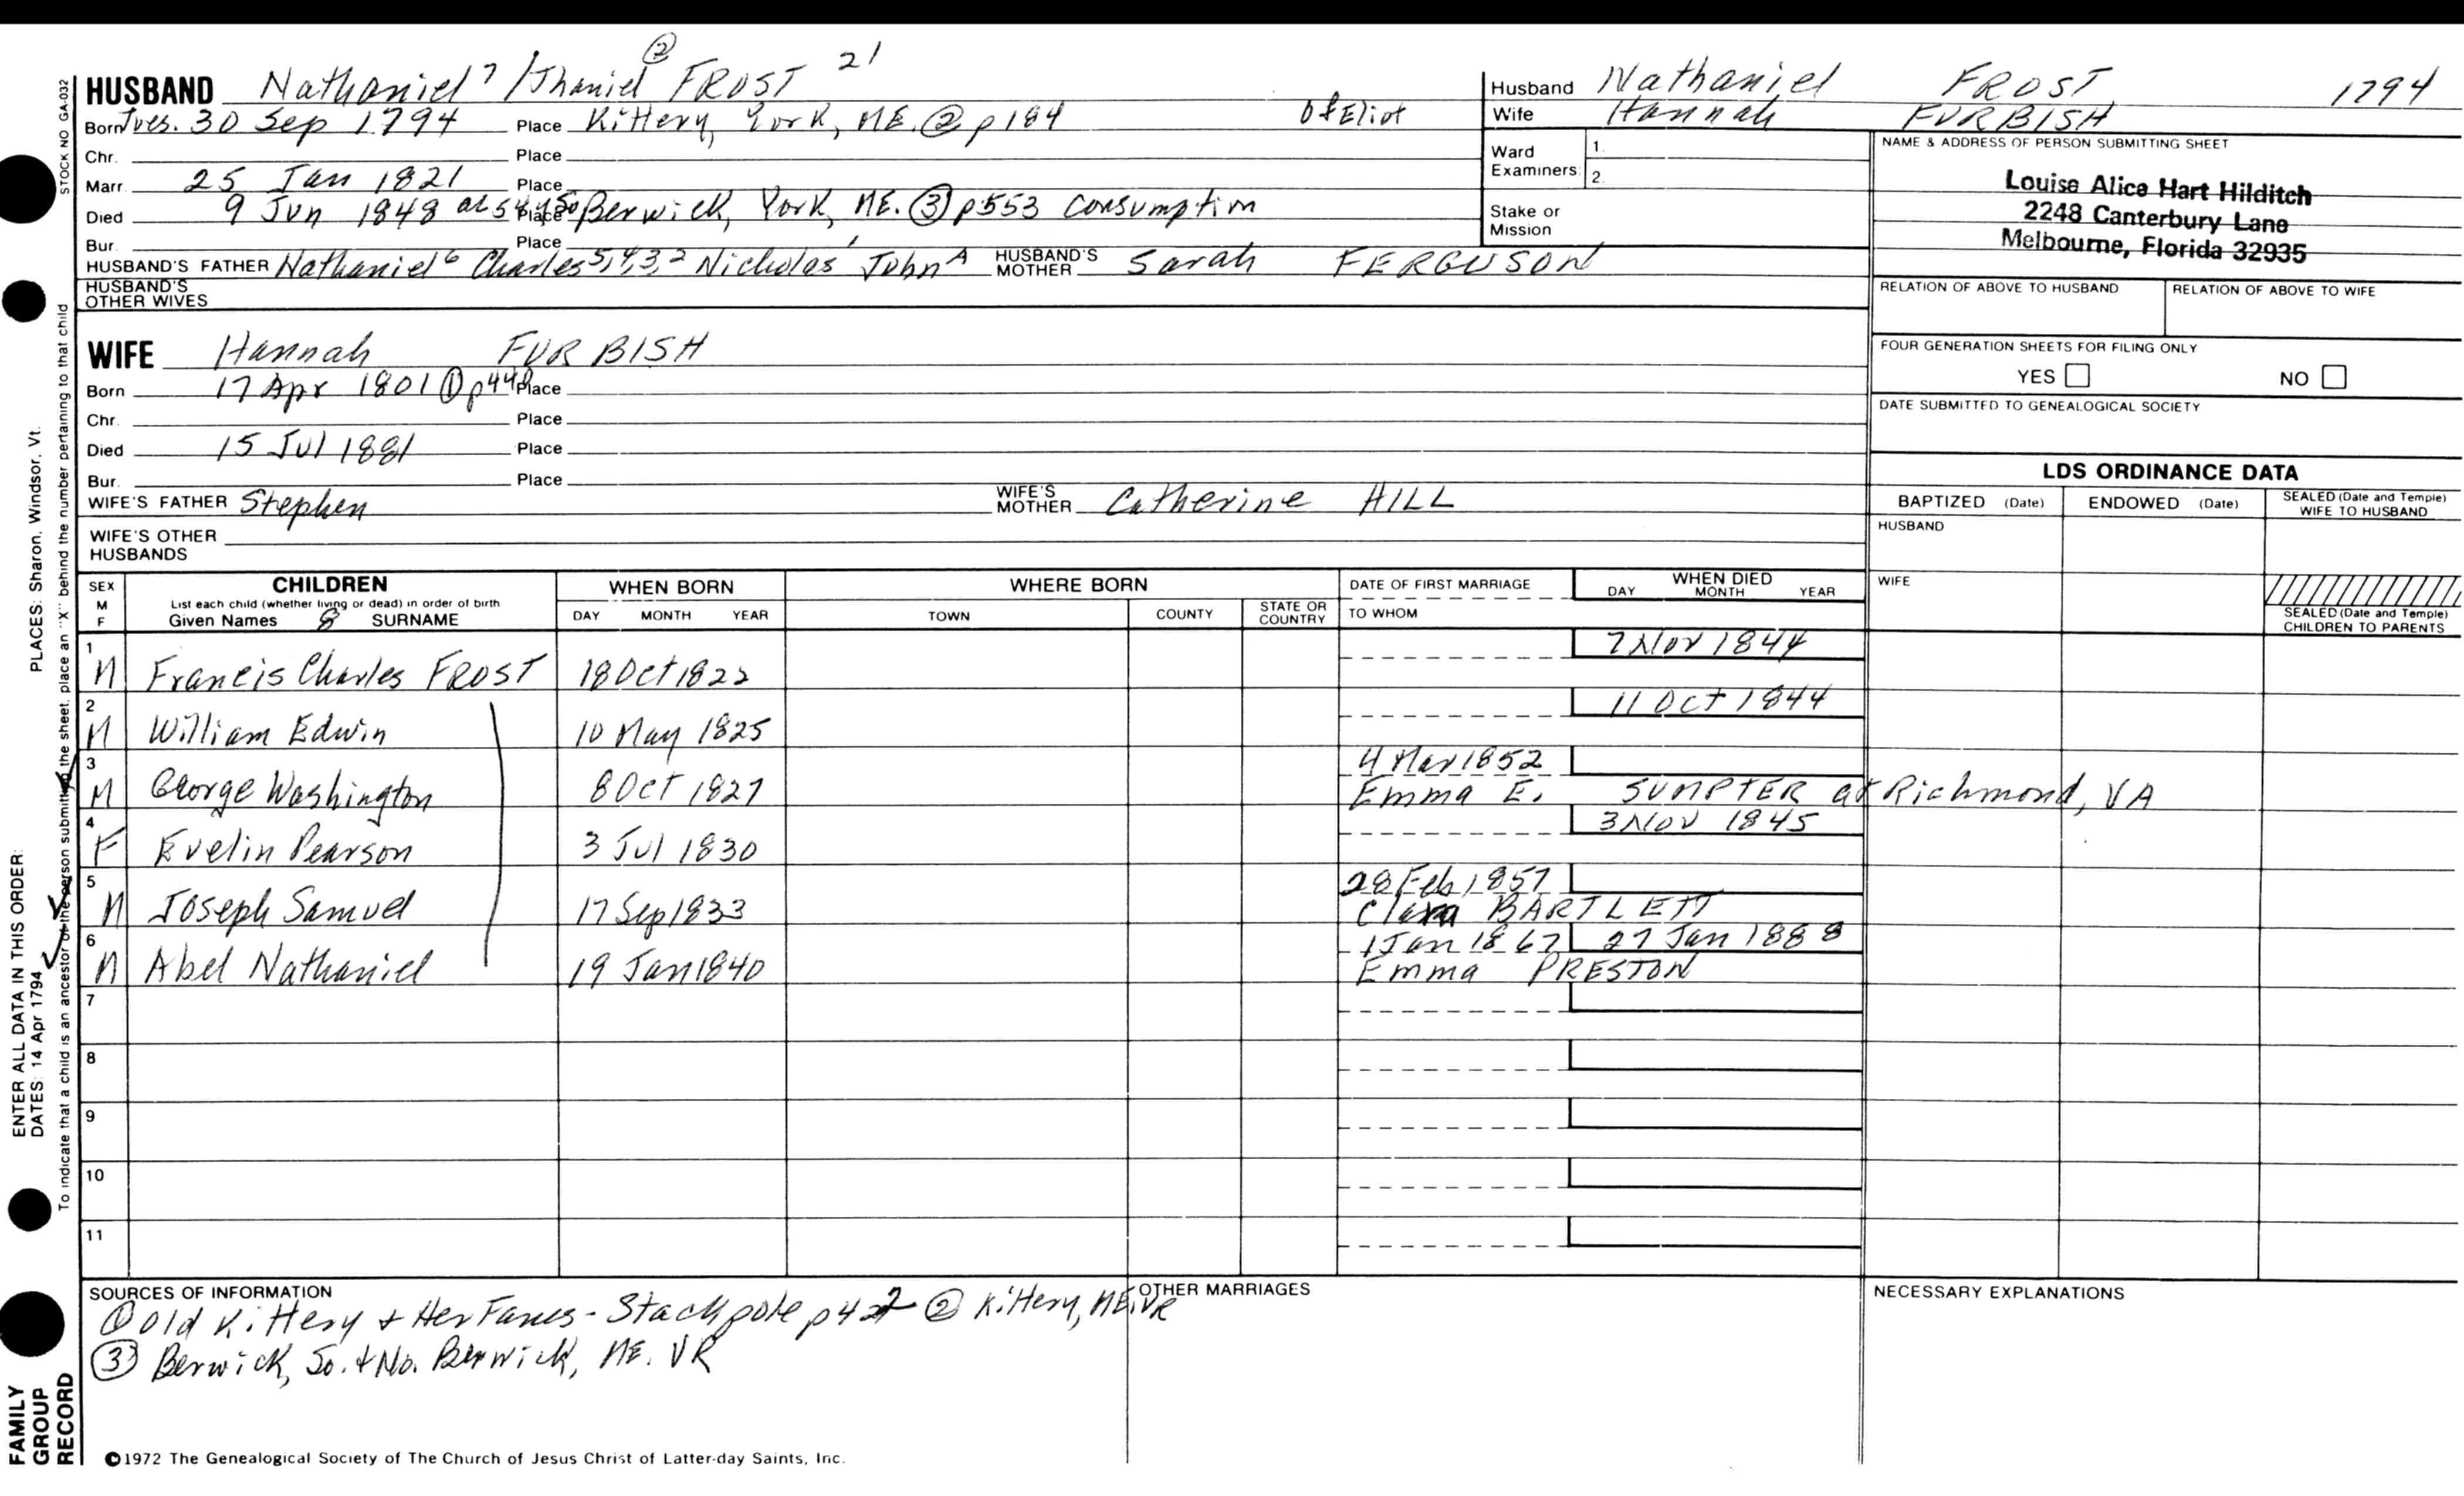 HUSBAND Nathaniel⁷ /Thaniel ② FROST 21
Born Tues. 30 Sep 1794 Place Kittery, York, ME. ② p184 Of Eliot
Chr. Place
Marr. 25 Jan 1821 Place
Died 9 Jun 1848 Place So Berwick, York, ME. ③ p553 Consumption
Bur. Place
HUSBAND'S FATHER Nathaniel⁶ Charles⁵,⁴,³,² Nicholas¹ Johnᴬ HUSBAND'S MOTHER Sarah FERGUSON
HUSBAND'S OTHER WIVES
WIFE Hannah FURBISH
Born 17 Apr 1801 ① p448 Place
Chr. Place
Died 15 Jul 1881 Place
Bur. Place
WIFE'S FATHER Stephen WIFE'S MOTHER Catherine HILL
WIFE'S OTHER HUSBANDS
Husband Nathaniel FROST 1794
Wife Hannah FURBISH
Ward Examiners: 1.
2.
Stake or Mission
NAME & ADDRESS OF PERSON SUBMITTING SHEET
Louise Alice Hart Hilditch
2248 Canterbury Lane
Melbourne, Florida 32935
RELATION OF ABOVE TO HUSBAND RELATION OF ABOVE TO WIFE
FOUR GENERATION SHEETS FOR FILING ONLY
YES NO
DATE SUBMITTED TO GENEALOGICAL SOCIETY
LDS ORDINANCE DATA
BAPTIZED (Date) ENDOWED (Date) SEALED (Date and Temple) WIFE TO HUSBAND
HUSBAND
WIFE
SEALED (Date and Temple) CHILDREN TO PARENTS
SEX M F
CHILDREN
List each child (whether living or dead) in order of birth
Given Names SURNAME
WHEN BORN
DAY MONTH YEAR
WHERE BORN
TOWN COUNTY STATE OR COUNTRY
DATE OF FIRST MARRIAGE
TO WHOM
WHEN DIED
DAY MONTH YEAR
1 M Francis Charles FROST 18 Oct 1822 7 Nov 1844
2 M William Edwin 10 May 1825 11 Oct 1844
3 M George Washington 8 Oct 1827 4 Mar 1852
Emma E. SUMPTER at Richmond, VA
4 F Evelin Pearson 3 Jul 1830 3 Nov 1845
5 M Joseph Samuel 17 Sep 1833 28 Feb 1857
Clara BARTLETT
6 M Abel Nathaniel 19 Jan 1840 1 Jan 1867 27 Jan 1888
Emma PRESTON
7
8
9
10
11
SOURCES OF INFORMATION
① Old Kittery & Her Fams - Stackpole ② Kittery, ME. VR
③ Berwick, So. + No. Berwick, ME. VR
OTHER MARRIAGES
NECESSARY EXPLANATIONS
©1972 The Genealogical Society of The Church of Jesus Christ of Latter-day Saints, Inc.
STOCK NO GA-032
To indicate that a child is an ancestor of the person submitting the sheet, place an "X" behind the number pertaining to that child
PLACES: Sharon, Windsor, Vt.
ENTER ALL DATA IN THIS ORDER:
DATES: 14 Apr 1794
FAMILY
GROUP
RECORD